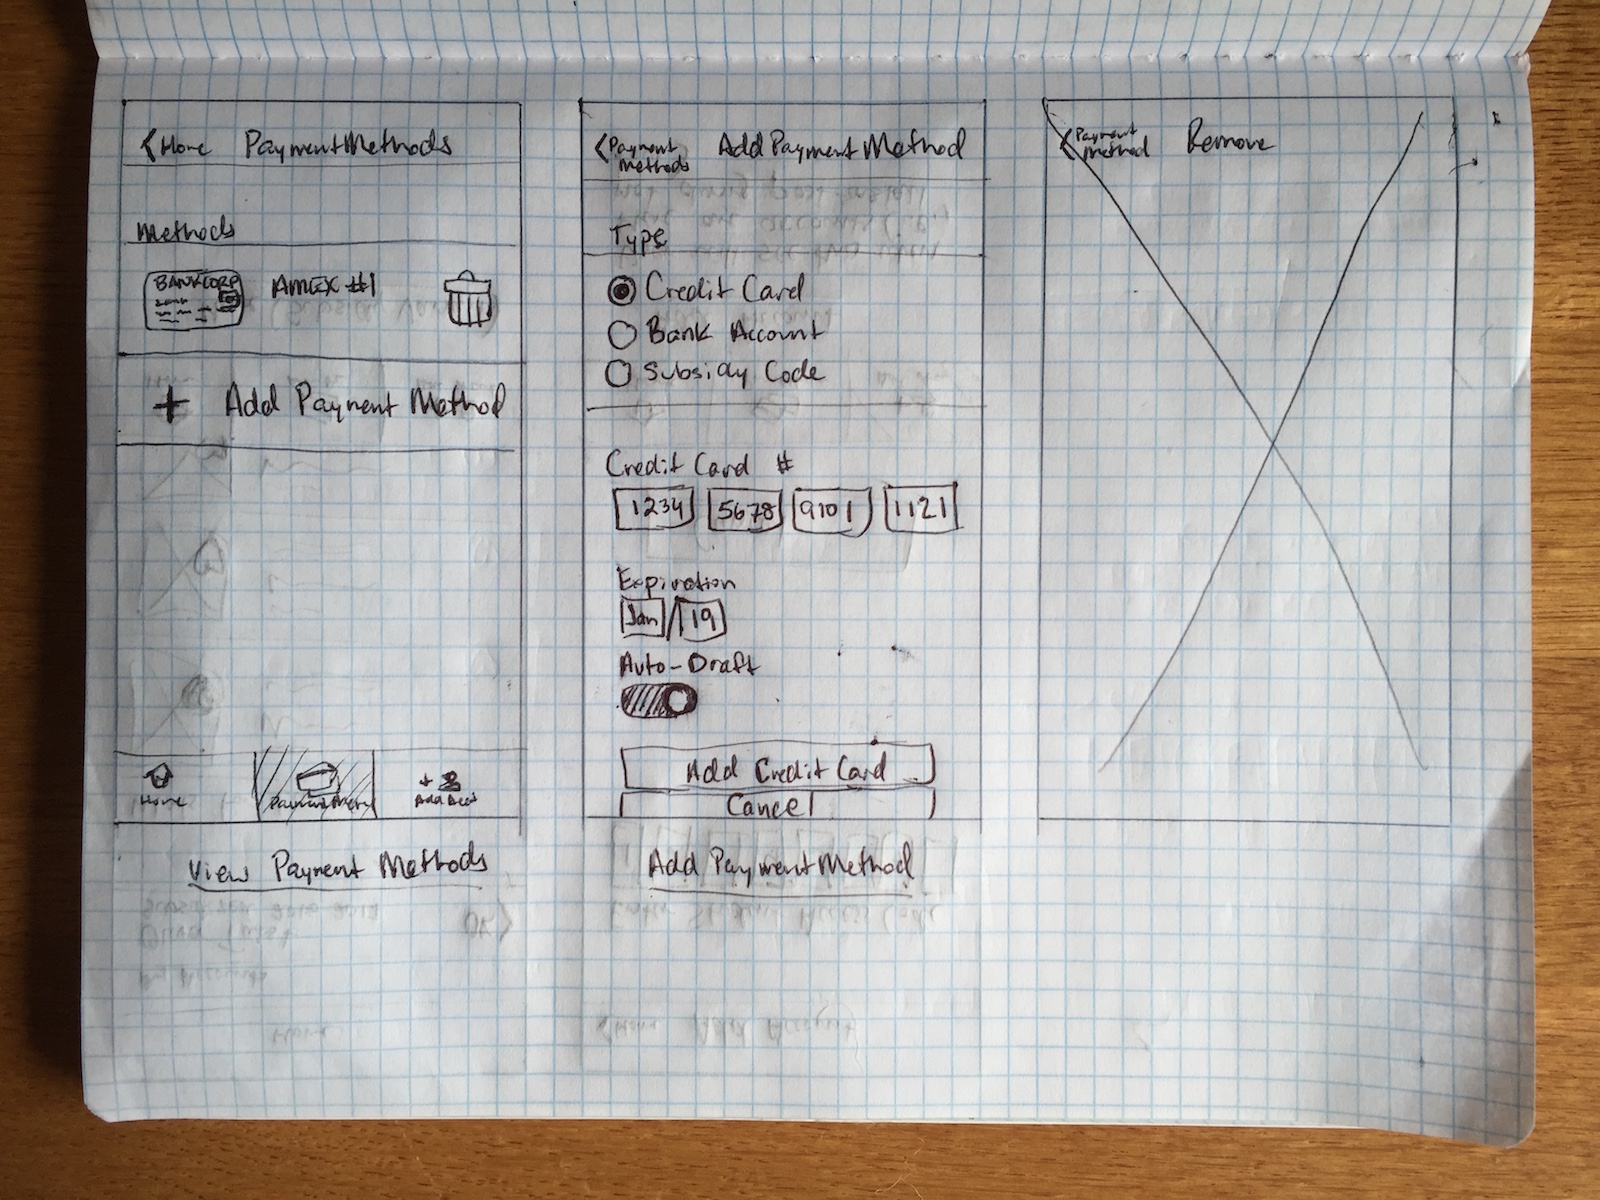 < Home Payment Methods
Methods
BANKCORP
AMEX #1
+ Add Payment Method
Home
Payment
Add Acct
View Payment Methods
< Payment
Methods
Add Payment Method
Type
Credit Card
Bank Account
Subsidy Code
Credit Card #
1234 5678 9101 1121
Expiration
Jan / 19
Auto-Draft
Add Credit Card
Cancel
Add Payment Method
< Payment
Method
Remove